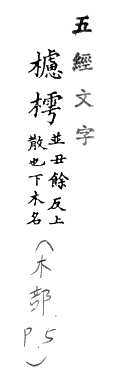 五經文字
櫖樗並丑餘反上
散也下木名
(木部 P.5)